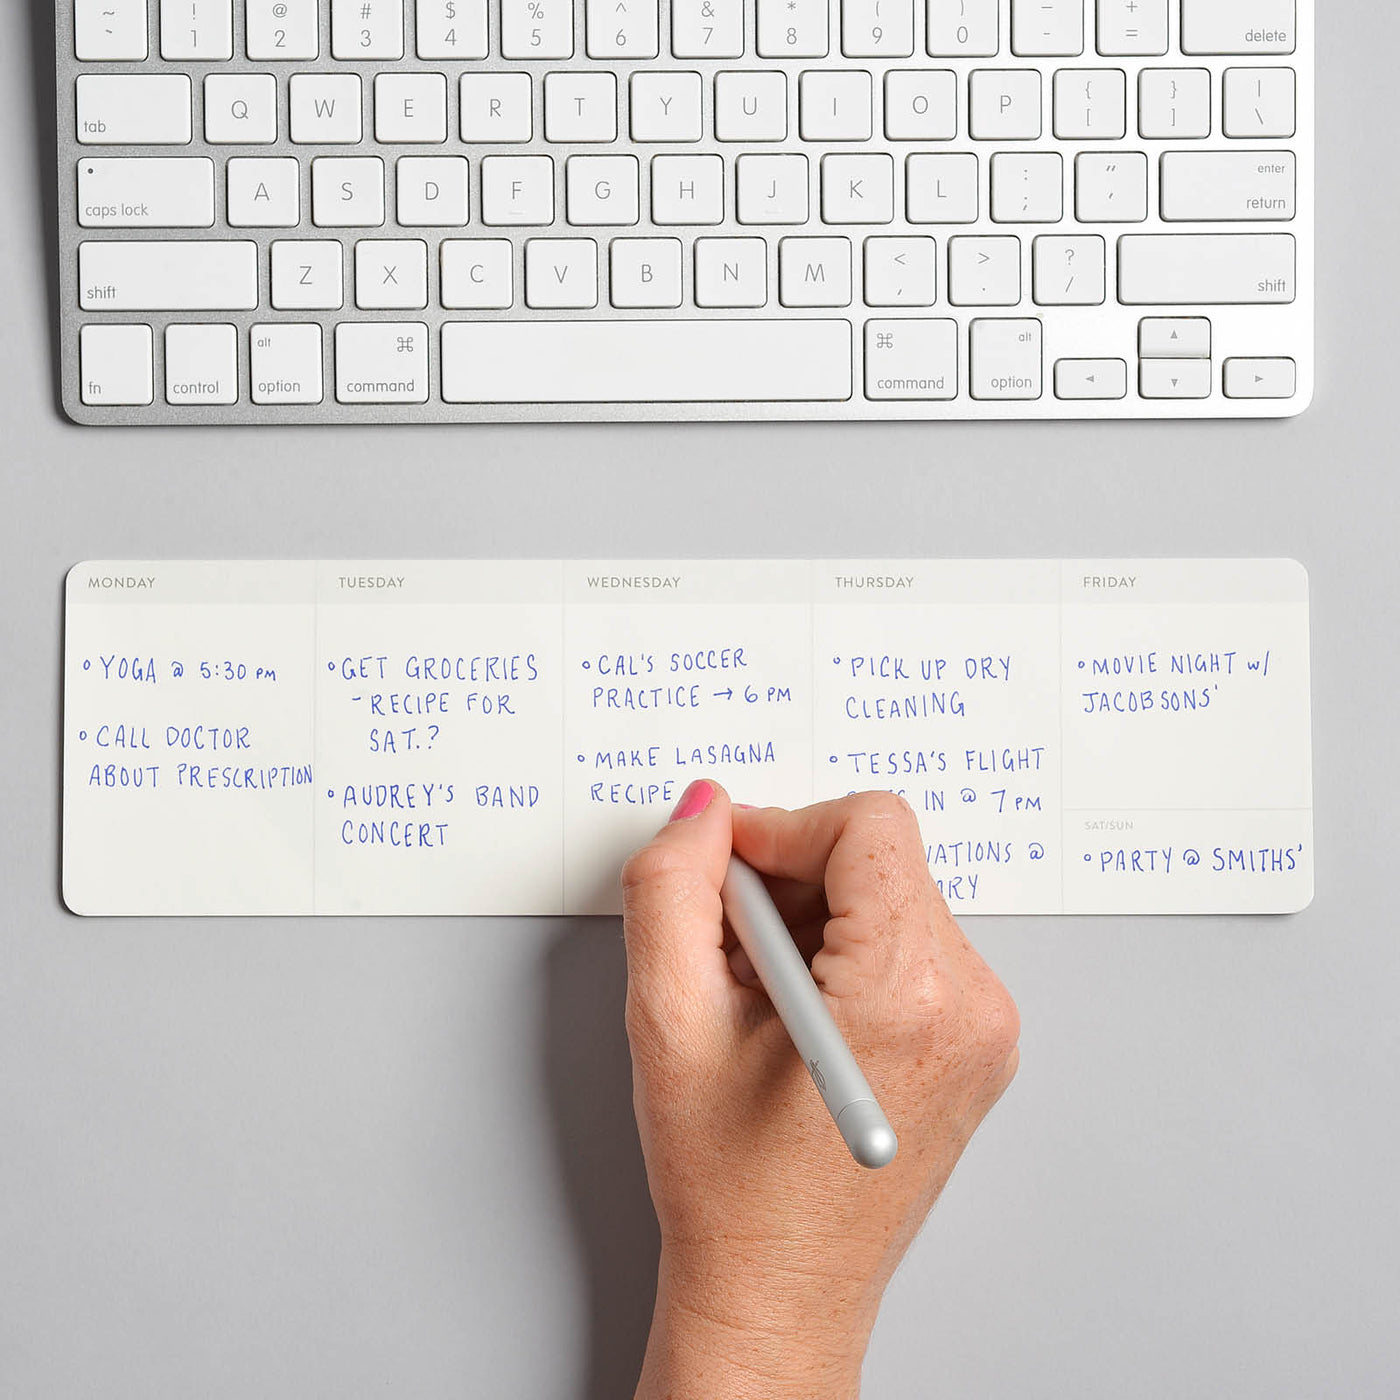 ~ ! @ # $ % ^ & * ( ) — +
` 1 2 3 4 5 6 7 8 9 0 - = delete
tab Q W E R T Y U I O P { [ } ] | \
caps lock A S D F G H J K L : ; “ ‘ enter return
shift Z X C V B N M < , > . ? / shift
fn control alt option ⌘ command ⌘ command alt option ◄ ▲ ▼ ►
MONDAY
YOGA @ 5:30 PM
CALL DOCTOR
ABOUT PRESCRIPTION
TUESDAY
GET GROCERIES
- RECIPE FOR
SAT.?
AUDREY'S BAND
CONCERT
WEDNESDAY
CAL'S SOCCER
PRACTICE → 6 PM
MAKE LASAGNA
RECIPE
THURSDAY
PICK UP DRY
CLEANING
TESSA'S FLIGHT
IN @ 7 PM
@
FRIDAY
MOVIE NIGHT w/
JACOBSONS'
SAT/SUN
PARTY @ SMITHS'